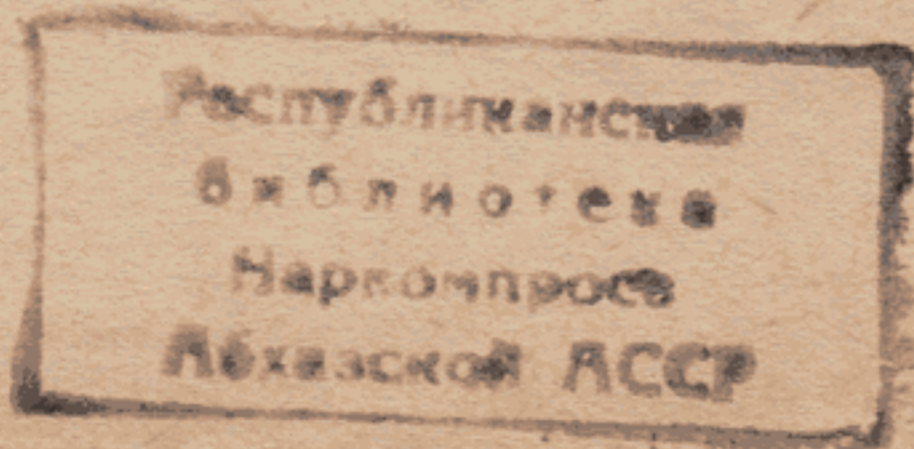 Республиканская
библиотека
Наркомпроса
Абхазской АССР